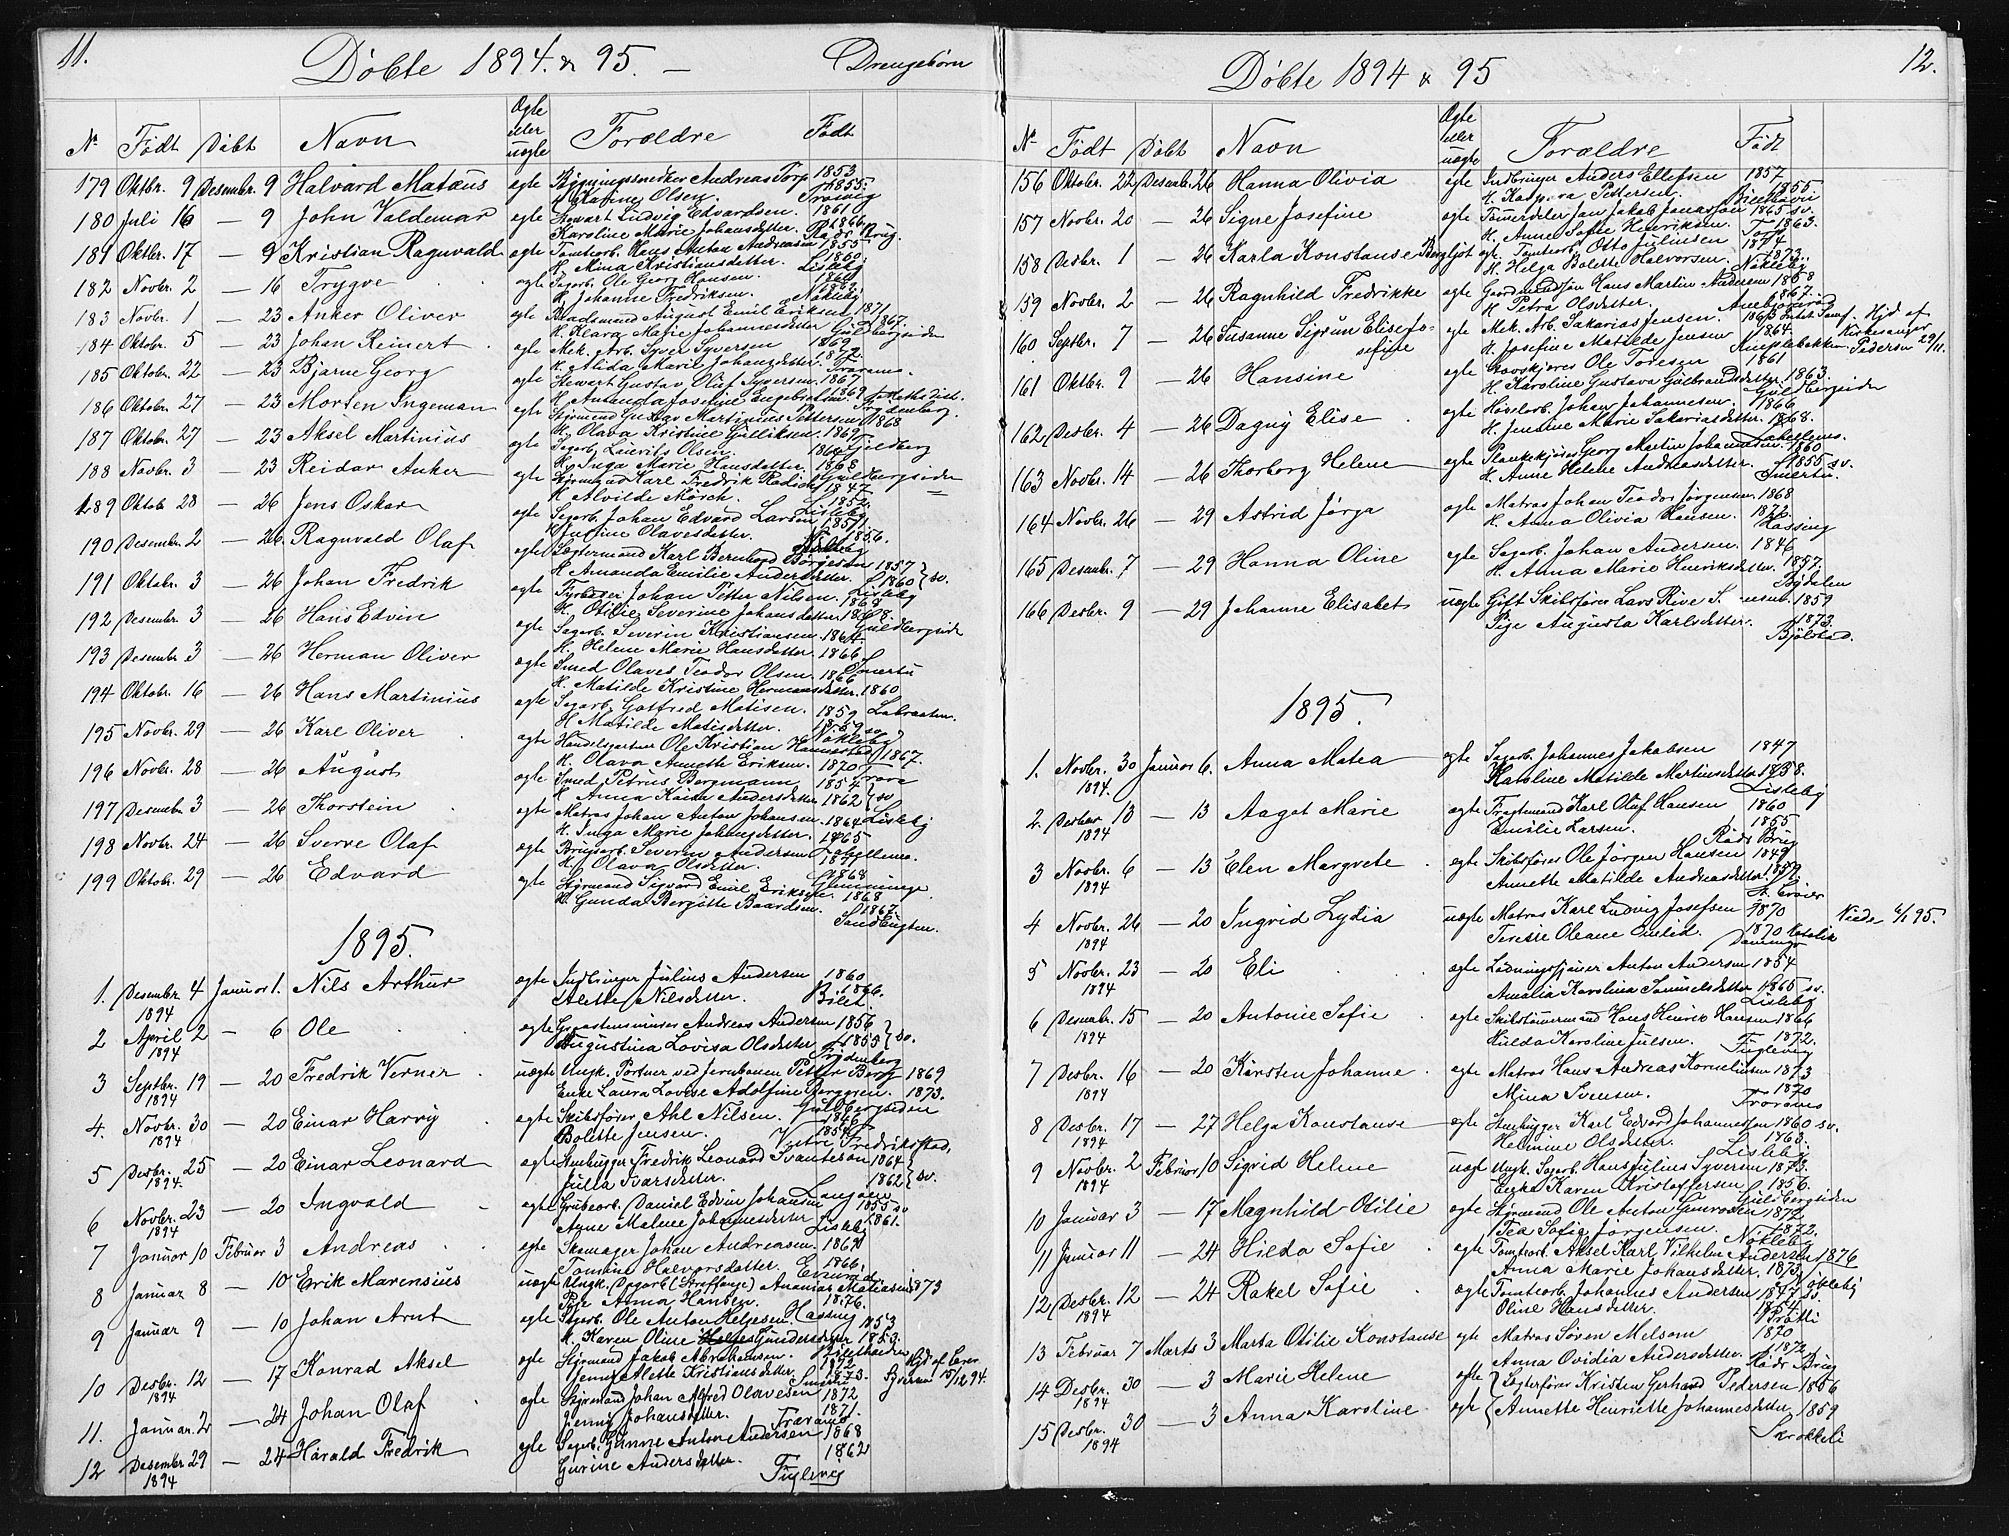 11.
Döbte 1894. & 95. — Drengebörn
No Födt Döbt Navn Ægte eller uægte Forældre Födt
179 Oktbr. 9 Desembr. 9 Halvard Matæus ægte Bygningssnedker Andreas Torp 1853
Olsen. 1855.
180 Juli 16 — 9 John Valdemar ægte Stewart Ludvig Edvardsen. 1861
Karoline Marie Johansdatter. 1866
181 Oktbr. 17 — 9 Kristian Ragnvald ægte Tomtearb. Hans Anton Andreasen 1855
H. Mina Kristiansdatter. 1860. Lisleby
182 Novbr. 2 — 16 Trygve ægte Sagarb. Ole Georg Hansen.
H. Johanne Fredriksen. Nökleby
183 Novbr. 1 — 23 Anker Oliver ægte Baadsmand August Emil Eriksen 1871
H. Klara Marie Johannesdatter 1867. Guldbergsiden
184 Oktobr. 5 — 23 Johan Reinert ægte Mek. Arb. Syver Syversen 1869
H. Alida Marie Johansdatter. 1872. Traranes.
185 Oktobr. 22 — 23 Bjarne Georg ægte Stewert Gustav Oluf Syversen 1867
H. Amanda Josefine Engebretsen. 1869
186 Oktobr. 27 — 23 Morten Ingeman ægte Styrmand Gustav Martinius Pettersen 1868
H. Olava Kristine Gulliksen. 1869.
187 Oktobr. 27 — 23 Aksel Martinius ægte Sagarb. Laurits Olsen.
H. Inga Marie Hansdatter. 1868
188 Novbr. 3 — 23 Reidar Anker ægte Styrmand Karl Fredrik Radich 1847.
H. Alvilde Mörch. 1852.
189 Oktob. 28 — 26 Jens Oskar ægte Sagarb. Johan Edvard Larsen 1857
H. Justine Olavesdatter. 1856.
190 Desember. 2 — 26. Ragnvald Olaf ægte Lægtermand Karl Bernhard Börgesen 1857
H. Amanda Emilie Andersdatter. 1860 } sv. Lisleby
191 Oktobr. 3 — 26 Johan Fredrik ægte Fyrböder Johan Petter Nilsen. 1868
H. Otilie Severine Johansdatter 1868. Guldbergsiden
192 Desember. 3 — 26 Hans Edvin ægte Sagarb. Severin Kristiansen. 1864
H. Helene Marie Hansdatter. 1866 Smertu
193 Desember 3 — 26 Herman Oliver ægte Smed Olaves Teodor Olsen. 1866
H. Matilde Kristine Hermansdatter. 1860
194 Oktobr. 16 — 26 Hans Martinius ægte Sagarb. Gotfred Matisen. 1859 Labraaten.
H. Matilde Matisdatter. 1859 sv. Nökleby
195 Novbr. 29 — 26 Karl Oliver ægte Handelsgartner Ole Kristian 1867.
H. Olava Annette Eriksen. 1870 Trara
196 Novbr. 28 — 26 August ægte Smed Petrus Bergmann 1854
H. Anna Kaisa Andersdatter 1862 } sv
197 Desember 3 — 26 Thorstein ægte Matros Johan Anton Johansen. 1864 Lisleby
H. Inga Marie Johansdatter. 1865
198 Novbr. 24 — 26 Sverre Olaf ægte Brugsarb. Severin Andersen
H. Olava Olsdatter.
199 Oktobr. 29 — 26 Edvard ægte Styrmand Sigvard Emil Eriksen. 1868
H. Gunda Bergitte Baardsen. 1867.
1895.
1. Desembr. 4 Januar 1. Nils Arthur ægte Indbringer Julius Andersen 1860
1894 Alette Nilsdatter. 1866. Bilet.
2 April 2 — 6 Ole ægte Graastensminer Andreas Andersen 1856
1894 Augustina Lovisa Olsdatter 1855 } sv. Trydenberg
3 Septbr. 19 — 20 Fredrik Verner uægte Ungk. Portner ved Jernbanen Petter Berg 1869
1894 Enke Laura Lovise Adolfine Berggren. 1873.
4. Novbr. 30 — 20 Einar Harry ægte Skibsförer Ahl Nilsen. Guldbergsiden 1866
1894 Bolette Jensen. Vestre Fredrikstad.
5 Desbr. 25 — 20 Einar Leonard ægte Stenhugger Fredrik Leonard Svanteson 1864
1894. Julia Ivarsdatter. 1862 } sv.
6 Novbr. 23 — 20 Ingvald ægte Grubearb. Daniel Edvin Johansen 1855 sv
1894 Agne Malene Johannesdatter 1861. Lisleby
7 Januar 10 Februar 3 Andreas ægte Skomager Johan Andreasen. 1867
Tomine Halvorsdatter. 1866.
8 Januar 8 — 10 Erik Marensius uægte Ungk. Dagarb. (Straffange) Ananias Matiasen 1873
Pige Anna Hansen. 1876.
9 Januar 9 — 10 Johan Arnt ægte Sagarb. Ole Anton Helgesen. Hassing 1853
H. Karen Oline Gundersdatter 1853.
10 Desbr. 12 — 17 Konrad Aksel ægte Styrmand Jakob Abrahamsen. 1872 Hjd. af Lærer
1894 Jenny Alette Kristiansdatter. 1873. 15/12 94.
11. Januar. 2 — 24 Johan Olaf ægte Styrmand Johan Alfred Olavesen 1872
Jenny Johansdatter. 1871. Traranes
12 Desember 29 — 24 Harald Fredrik ægte Sagarb. Gunne Anton Andersen 1868
1894 Gurine Andersdatter. 1862 Fuglevig
12.
Döbte 1894 & 95
No Födt Döbt Navn Ægte eller uægte Forældre Födt
156 Oktobr. 22 Desembr. 26 Hanna Olivia ægte Indbringer Anders Ellefsen 1857
H. Pettersen. 1855
157 Novbr. 20 — 26 Signe Josefine ægte Tömerdeler Jan Jakob Jonassen 1865 sv.
H. Anne Sofie Henriksen. 1863. Torp
158 Desbr. 1 — 26 Karla Konstanse Bergljot ægte Tomtearb. Otto Julinsen 1874
H. Helga Bolette Halvorsen. 1873. Nökleby
159 Novbr. 2 — 26 Ragnhild Fredrikke ægte Gaardmandssön Hans Martin Andersen 1868
H. Petra Olsdatter. 1867.
160 Septbr. 7 — 26 Susanne Sigrun Elise Jo- ægte Mek. Arb. Sakarias Jensen. 1863 Hjd. af
sefine H. Josefine Matilde Jensen 1864. Kirkesanger Pedersen 29/11.
161 Oktbr. 9 — 26 Hansine ægte Stovskjörer Ole Toresen 1861
H. Karoline Gustava Gulbrandsdatter. 1863. Guldbergsiden
162 Desbr. 4 — 26 Dagny Elise ægte Hövlerb. Johan Johannesen. 1866
H. Jensine Marie Sakariasdatter. 1868.
163 Novbr. 14 — 26 Thorborg Helene ægte Plankekjörer Georg Martin Johannesen. 1860
H. Anne Helene Andreasdatter. 1855 sv. Smertu.
164 Novbr. 26 — 29 Astrid Jörga ægte Matros Johan Teodor Jörgensen. 1868
H. Anna Olivia Hansen. 1872. Hassing
165 Desembr. 7 — 29 Hanna Oline ægte Sagarb. Johan Andersen. 1846
H. Anna Marie Henriksdatter. 1857. Bydalen
166 Desbr. 9 — 29 Johanne Elisabet uægte Gift Skibsförer Lars Rive 1859
Pige Augusta Karlsdatter. 1873. Bjölstad.
1895.
1. Novbr. 30 Januar 6. Anna Matea ægte Sagarb. Johannes Jakobsen 1847
1894. Karoline Matilde Martinsdatter 1858. Lisleby
2. Desbr 13 — 13 Aagot Marie ægte Fragtemand Karl Oluf Hansen 1860
1894 Emilie Larsen. 1855 Råds Brug
3 Novbr. 6 — 13 Elen Margrete ægte Skibsförer Ole Jörgen Hansen 1849
1894 Annette Matilde Andreasdatter. 1859.
4 Novbr. 26 — 20 Ingrid Lydia uægte Matros Karl Ludvig Josefsen 1870 95.
1894 Terese Oleane 1870 Katolik
5 Novbr. 23 — 20 Eli ægte Lodningstjener Anton Andersen 1854
1894 Amalia Karolina Samuelsdatter 1865 sv. Lisleby
6 Desembr. 15 — 20 Antonie Sofie ægte Skibstömmermand Hans Henrik Hansen 1866
1894 Hulda Karoline Julsen. 1872. Fuglevig
7 Desbr. 16 — 20 Kirsten Johanne ægte Matros Hans Andreas Kornelinsen 1873
1894 Mina Svensen. 1870 Traranes
8 Desbr. 17 — 27 Helga Konstanse ægte Stenhugger Karl Edvard Johannesson 1860 sv.
1894 Helmine Olsdatter. 1863. Lisleby
9 Novbr. 2 Februar 10 Sigrid Helene uægt Ungk. Sagarb. Hans Julius Syversen 1873.
1894 Enke Karen Kristoffersen 1856. Guldbergsiden
10 Januar 3 — 17 Magnhild Otilie ægte Styrmand Ole Anton 1872
Tea Sofie Jörgensen. 1872. Nökleby
11 Januar 11 — 24 Hilda Sofie ægte Tomtearb. Aksel Karl Vilhelm Andersen 1876
Anna Marie Johansdatter. 1873. Nökleby
12 Desbr. 12 — 24 Rakel Sofie ægte Tomtearb. Johannes Andersen 1847
1894 Oline Hansdatter. 1854.
13 Februar 7 Marts 3 Marta Otilie Konstanse ægte Matros Sören Melsom 1870
Anna Ovidia Andersdatter. 1872. Råds Brug
14 Desbr. 30 — 3 Marie Helene ægte { Lægterförer Kristen Gerhard Pedersen 1856
1894
15 Desbr. 30 — 3 Anna Karoline ægte { Annette Henriette Johannesdatter, 1859
1894 Særokkeli